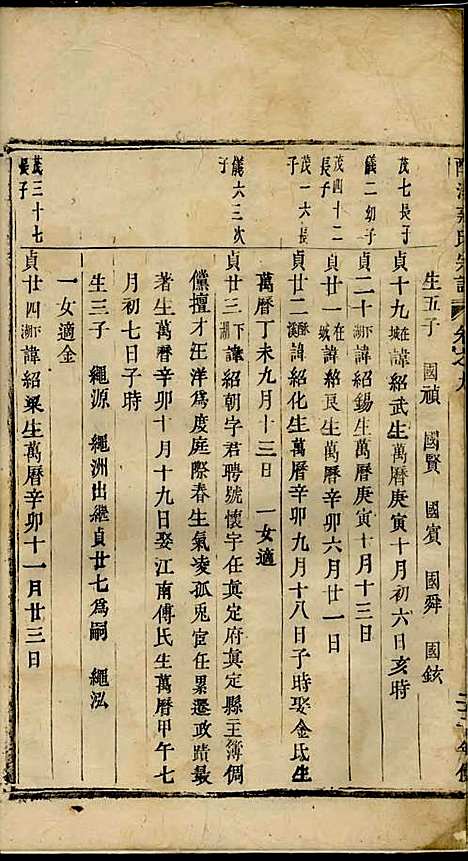 生五子 國禎 國賢 國賓 國舜 國鉉
茂七長子
貞十九在城諱紹武生萬曆庚寅十月初六日亥時
儀二幼子
貞二十下湖諱紹錫生萬曆庚寅十月十三日
茂四十二長子
貞廿一在城諱紹良生萬曆辛卯六月廿一日
茂一六長子
貞廿二諱紹化生萬曆辛卯九月十八日子時娶金氏生
萬曆丁未九月十三日 一女適
儀六三次子
貞廿三下湖諱紹朝字君聘號懷宇任真定府真定縣主簿倜
儻擅才汪洋為度庭際春生氣凌孤兎宦任累遷政蹟最
著生萬曆辛卯十月十九日娶江南傅氏生萬曆甲午七
月初七日子時
生三子 繩源 繩洲出継貞廿七為嗣 繩泓
一女適金
茂三十七長子
貞廿四下湖諱紹梁生萬曆辛卯十一月廿三日